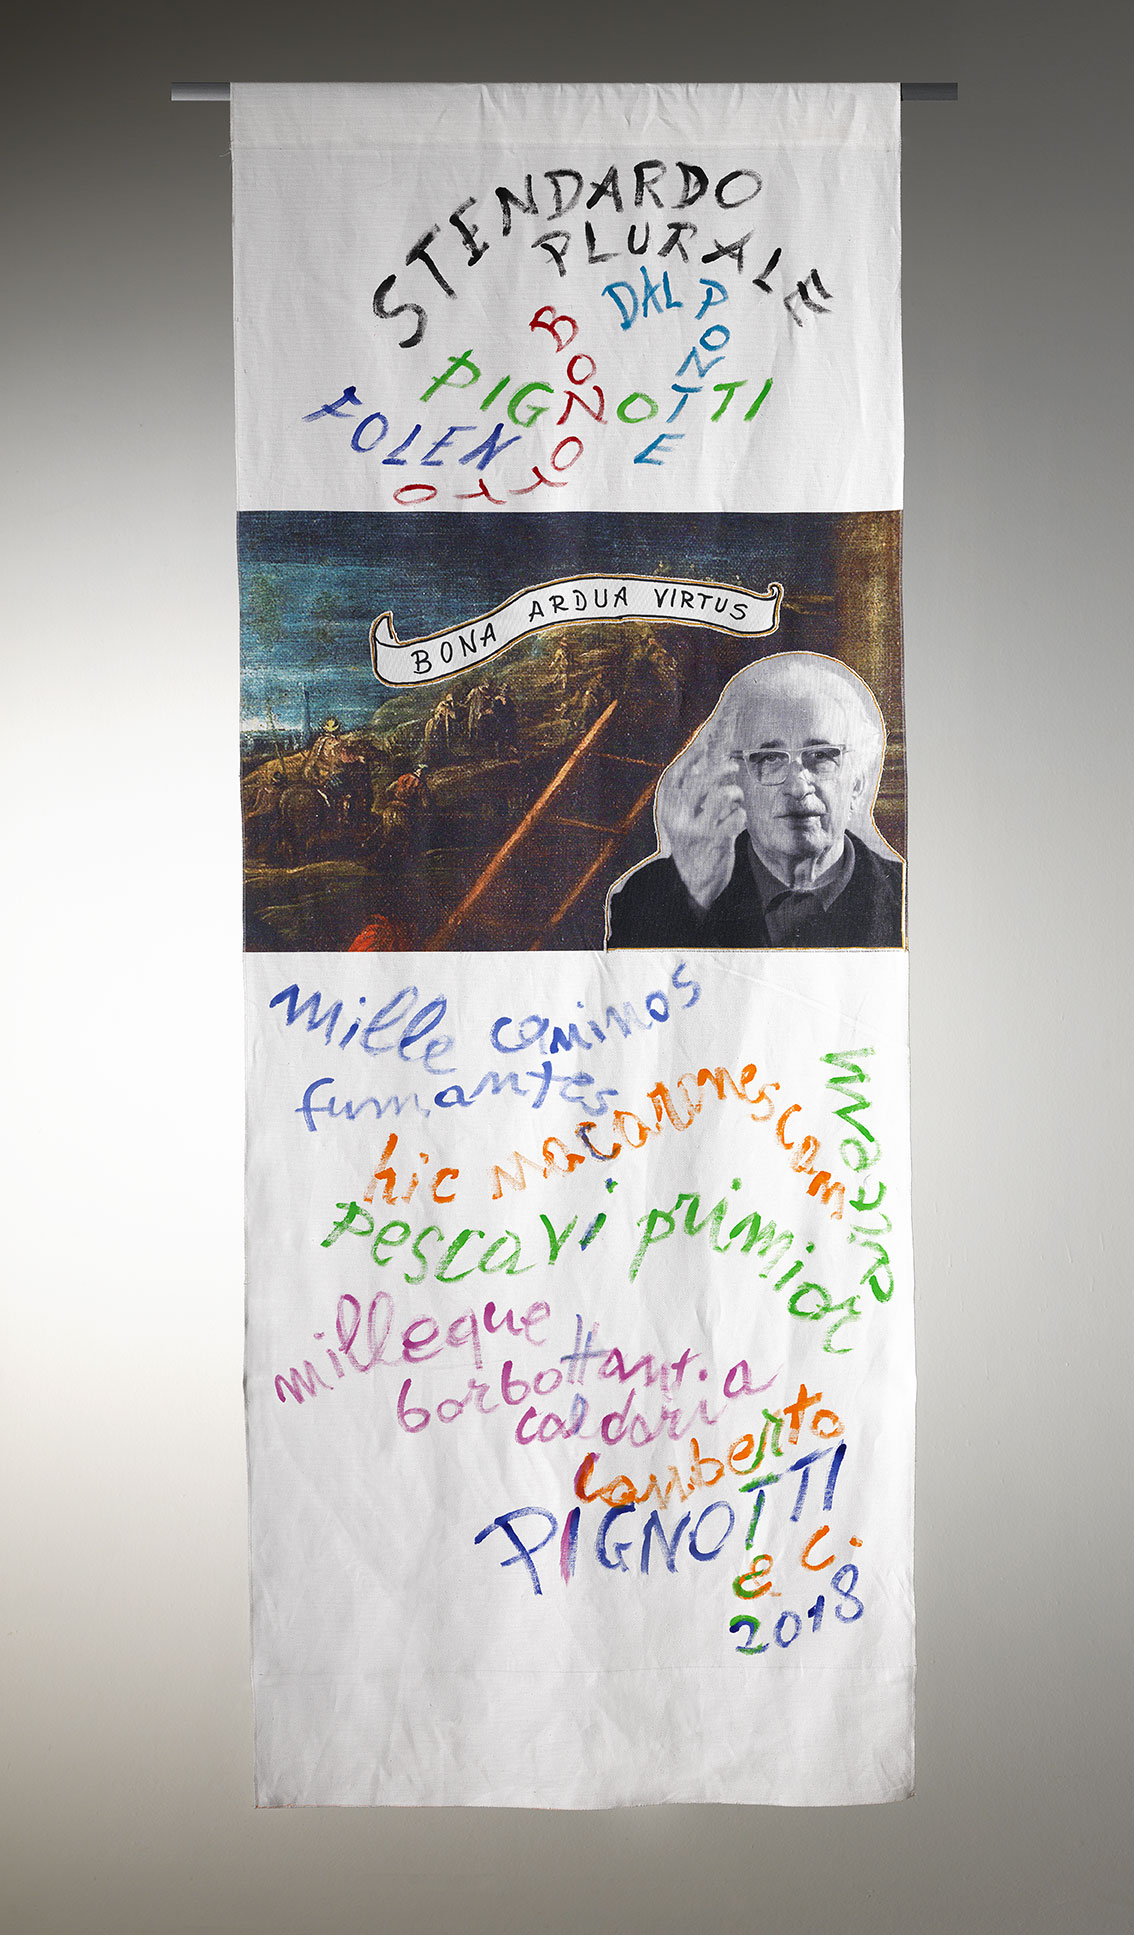 STENDARDO
PLURALE
DAL PONTE
BONOTTO
PIGNOTTI
FOLEN
BONA ARDUA VIRTUS
mille caminos
fumantes
hic macaronescam
pescavi primior
artem
milleque
borbottantia
caldaria
Lamberto
PIGNOTTI
e C.
2018